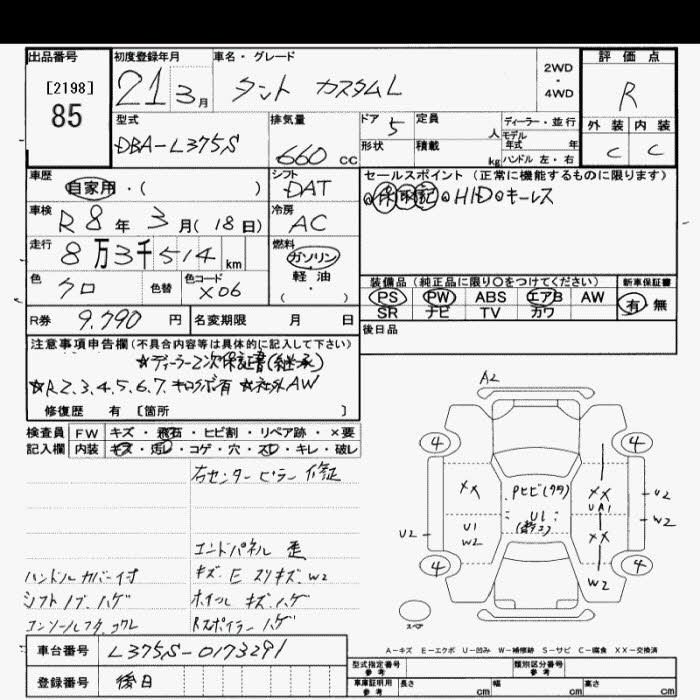 出品番号
[2198]
85
初度登録年月
21 3月
車名・グレード
タント カスタムL
2WD
・
4WD
評価点
R
外装 内装
C C
型式
DBA-L375S
排気量
660 cc
ドア 5
形状
定員 人
積載 kg
ディーラー・並行
モデル年式 年
ハンドル 左・右
車歴
自家用・( )
シフト
DAT
セールスポイント(正常に機能するものに限ります)
HID キーレス
車検
R8年3月(18日)
冷房
AC
走行
8万3千514km
燃料
ガソリン
軽油
( ・ )
色
クロ
色替
色コード
X06
装備品(純正品に限り○をつけてください)
新車保証書
PS PW ABS エアB AW
有・無
SR ナビ TV カワ
R券 9.790 円
名変期限 月 日
後日品
注意事項申告欄(不具合内容等は具体的に記入して下さい)
☆ディーラー2次保証書(継承)
☆R2.3.4.5.6.7.キロクボ有 ☆社外AW
修復歴 有 [箇所 ]
検査員 FW キズ・飛石・ヒビ割・リペア跡・×要
記入欄 内装 キズ・汚レ・コゲ・穴・スレ・キレ・破レ
右センターピラー修正
エンドパネル 歪
ハンドルカバー付 キズ.E スリキズ.W2
シフトノブ.ハゲ ホイル キズ.ハゲ
コンソールフタ.コワレ Rスポイラー ハゲ
A2
4 4
XX Pヒビ(ワレ) XX
UA1
U2
U1 U1 XX W2
U2 W2
4 4
W2
スペア
A-キズ E-エクボ U-凹み W-補修跡 S-サビ C-腐食 XX-交換済
車台番号 L375S-0173291
登録番号 後日
型式指定番号 参考
類別区分番号 参考
車庫証明用 参考
長さ cm 幅 cm 高さ cm